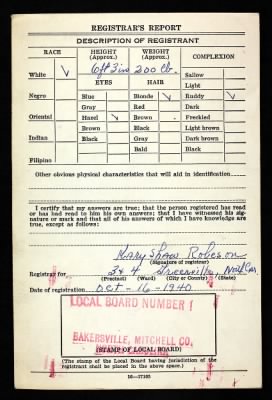 REGISTRAR'S REPORT
DESCRIPTION OF REGISTRANT
RACE HEIGHT (Approx.) WEIGHT (Approx.) COMPLEXION
6 ft 3 in 200 lb.
White ✓ EYES HAIR Sallow
Light
Negro Blue Blonde ✓ Ruddy ✓
Gray Red Dark
Oriental Hazel ✓ Brown Freckled
Brown Black Light brown
Indian Black Gray Dark brown
Bald Black
Filipino
Other obvious physical characteristics that will aid in identification
I certify that my answers are true; that the person registered has read
or has had read to him his own answers; that I have witnessed his sig-
nature or mark and that all of his answers of which I have knowledge are
true, except as follows:
Mary Shaw Robeson
(Signature of registrar)
Registrar for 3 & 4 Greenville, North Car
(Precinct) (Ward) (City or County) (State)
Date of registration Oct-16-1940
LOCAL BOARD NUMBER 1
BAKERSVILLE, MITCHELL CO,
NORTH CAROLINA
(STAMP OF LOCAL BOARD)
(The stamp of the Local Board having jurisdiction of the
registrant shall be placed in the above space.)
16—17105